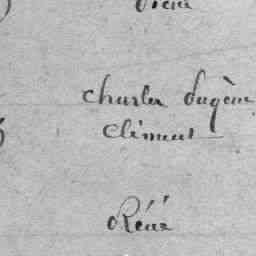 Charles Eugène
Clément
Réné